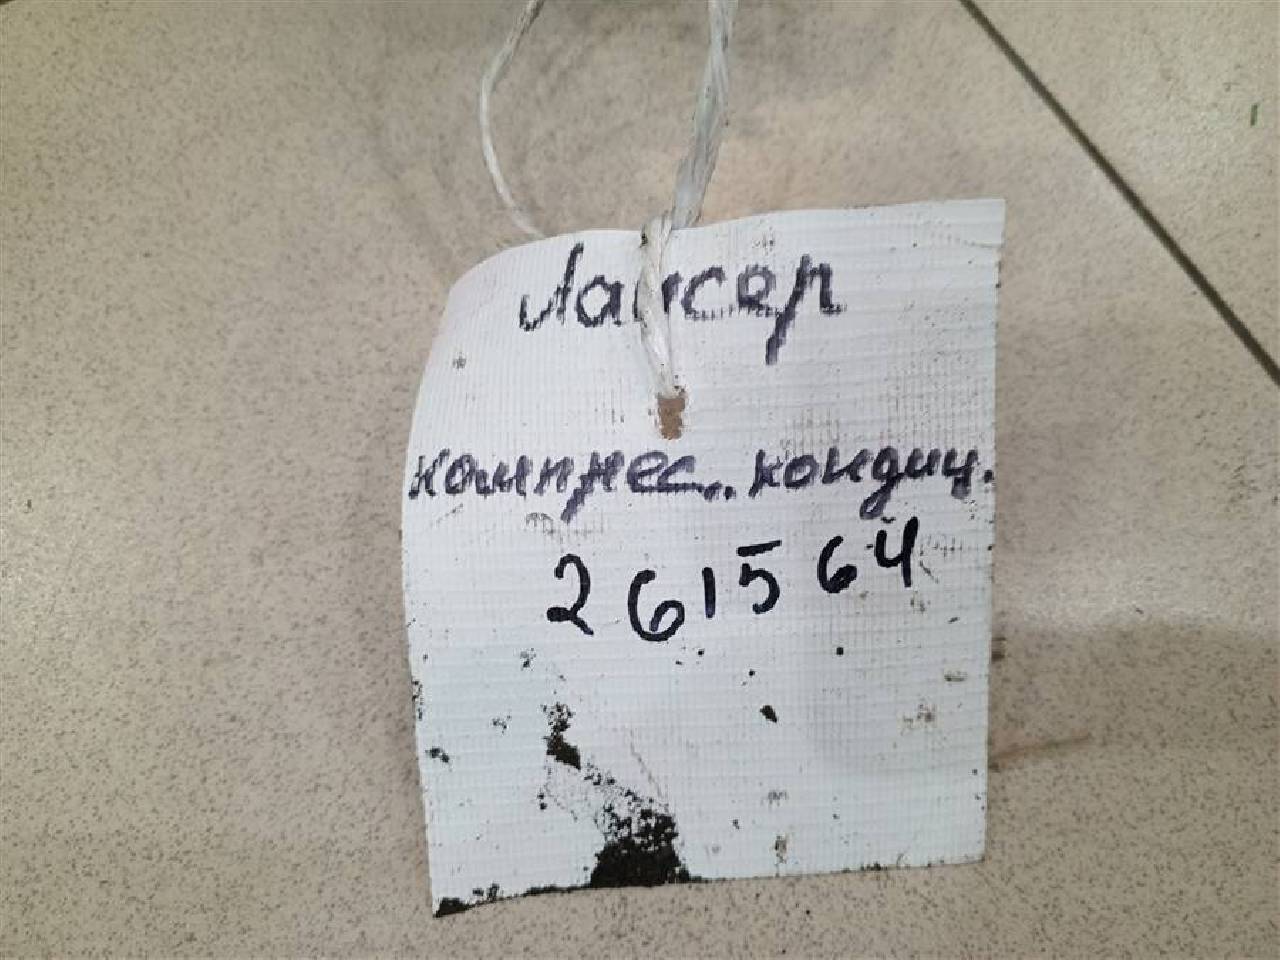 Лансер
компрес. кондиц.
261564